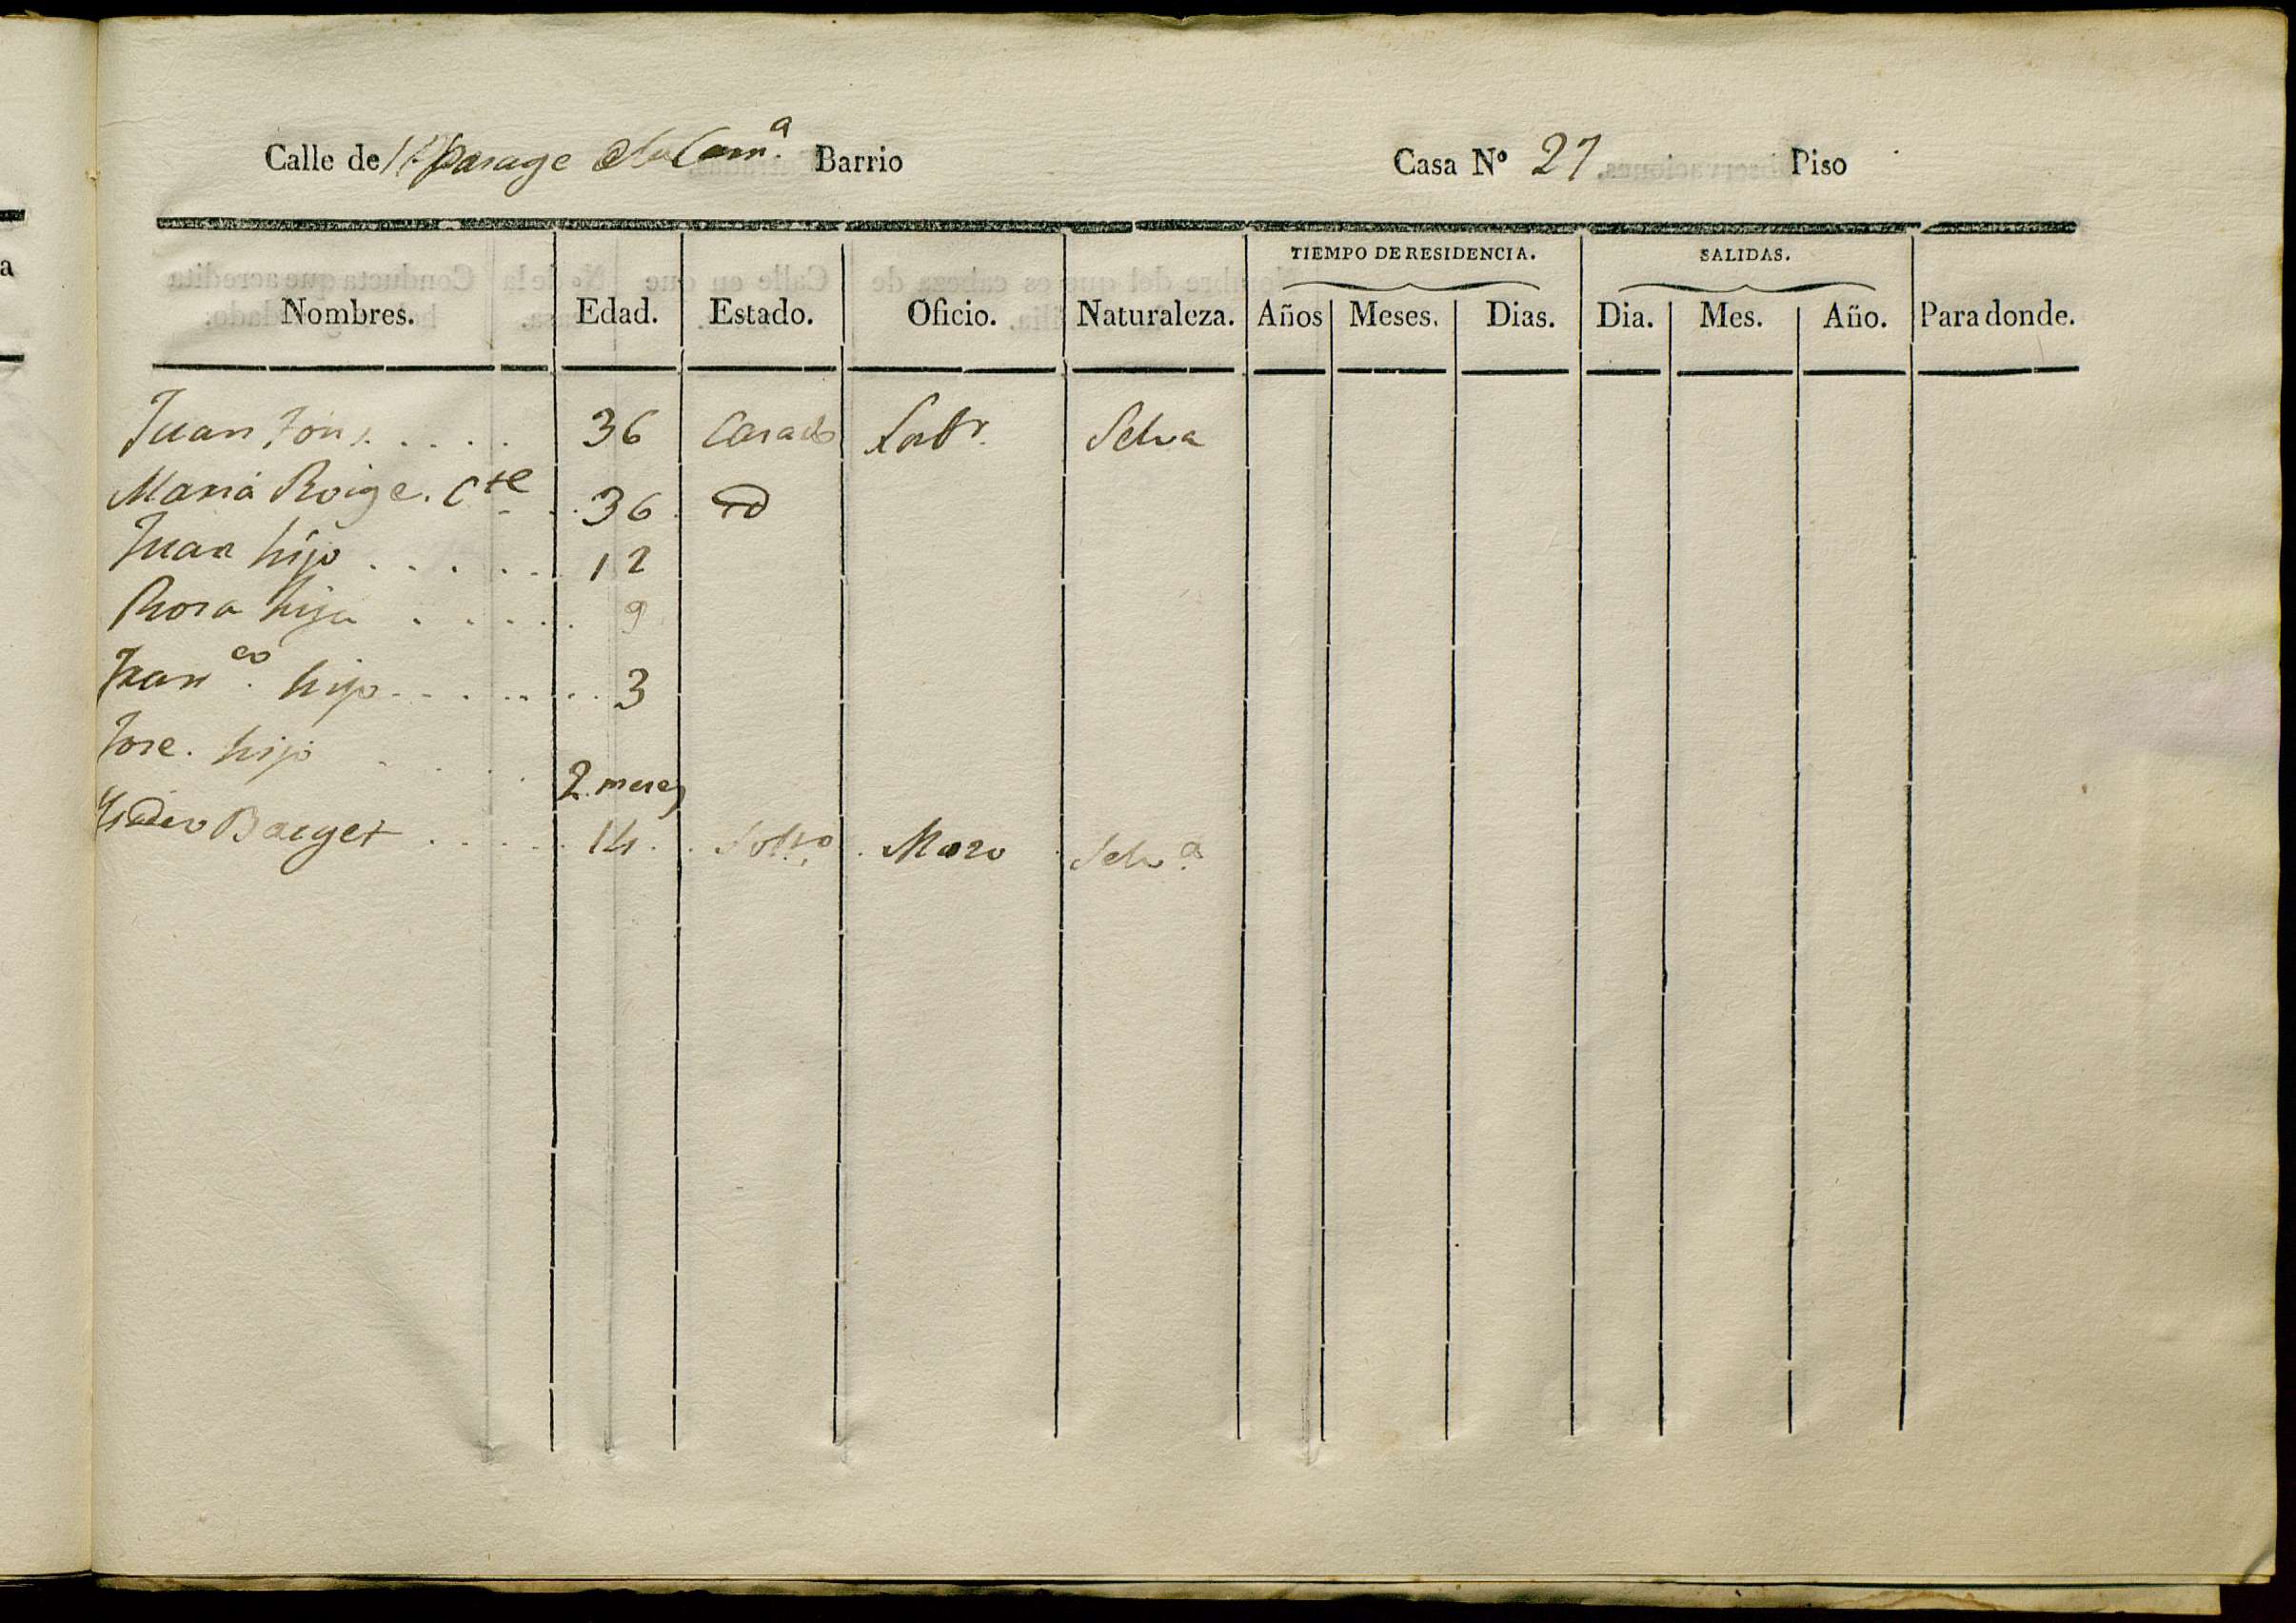 Calle de Parage Barrio Casa Nº 27 Piso
TIEMPO DE RESIDENCIA. SALIDAS.
Nombres. Edad. Estado. Oficio. Naturaleza. Años Meses. Dias. Dia. Mes. Año. Para donde.
Juan 36 Casado Labr. Selva
Maria Roige. Cte 36 id
Juan hijo 12
Rosa hija 9
Franco. hijo 3
Jose. hijo 2. meses
Barget 14 Soltro Mozo Selva
a